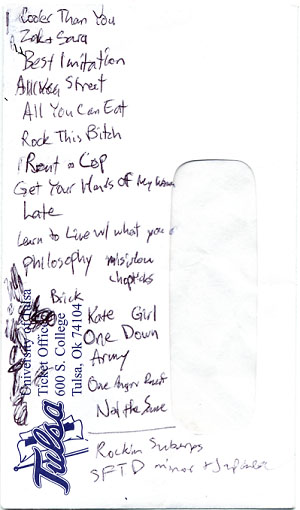 Cooler Than You
Zak + Sara
Best Imitation
All Street
All You Can Eat
Rock This Bitch
Rent a Cop
Get Your Hands Of My Woman
Late
Learn to Live w/ what you
Philosophy misirlou
chopsticks
Brick
Kate Girl
One Down
Army
One Angry
Not the Same
Rockin Suburbs
SFTD minor +
Tulsa
University of Tulsa
Ticket Office
600 S. College
Tulsa, Ok 74104